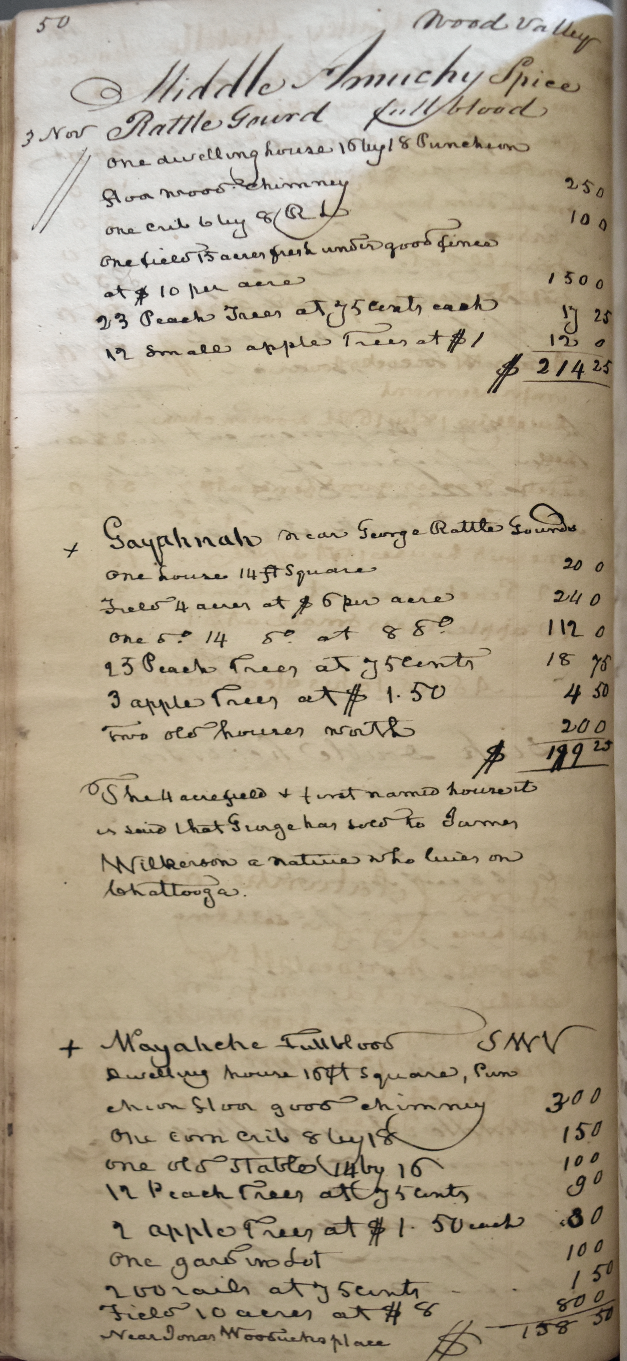 50 Wood Valley
Middle Amuchy Spice
3 Nov Rattle Gourd fullblood
One dwelling house 16 by 18 Puncheon
floor wood chimney 25 0
one crib 6 by 8 10 0
One field 15 acres fresh under good fence
at $ 10 per acre 150 0
23 Peach Trees at 75 cents each 17 25
12 Small apple Trees at $1 12 0
$ 214 25
+ Gayahnah near George Rattle Gourds
One house 14 ft Square 20 0
Field 4 acres at $ 6 per acre 24 0
One do 14 do at 8 do 112 0
25 Peach Trees at 75 cents 18 75
3 apple Trees at $ 1.50 4 50
Two old houses worth 20 0
$ 199 25
The 4 acre field & first named house it
is said that George has sold to James
Wilkerson a native who lives on
Chattooga.
+ Mayahche Fullblood
Dwelling house 16 ft Square, Pun
cheon floor good chimney 30 0
One corn crib 8 by 18 15 0
one old Stable 14 by 16 10 0
12 Peach Trees at 75 cents 9 0
2 apple Trees at $ 1.50 each 3 0
One garden lot 10 0
200 rails at 75 cents 1 50
Field 10 acres at $ 8 80 0
Near Jonas place $ 158 50